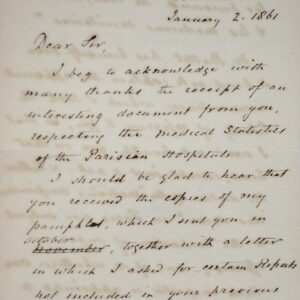 January 2. 1861
Dear Sir,
I beg to acknowledge with
many thanks the receipt of an
interesting document from you,
respecting the medical Statistics
of the Parisian Hospitals
I should be glad to hear that
you received the copies of my
pamphlet, which I sent you in
October
November, together with a letter
in which I asked for certain Reports
not included in your previous